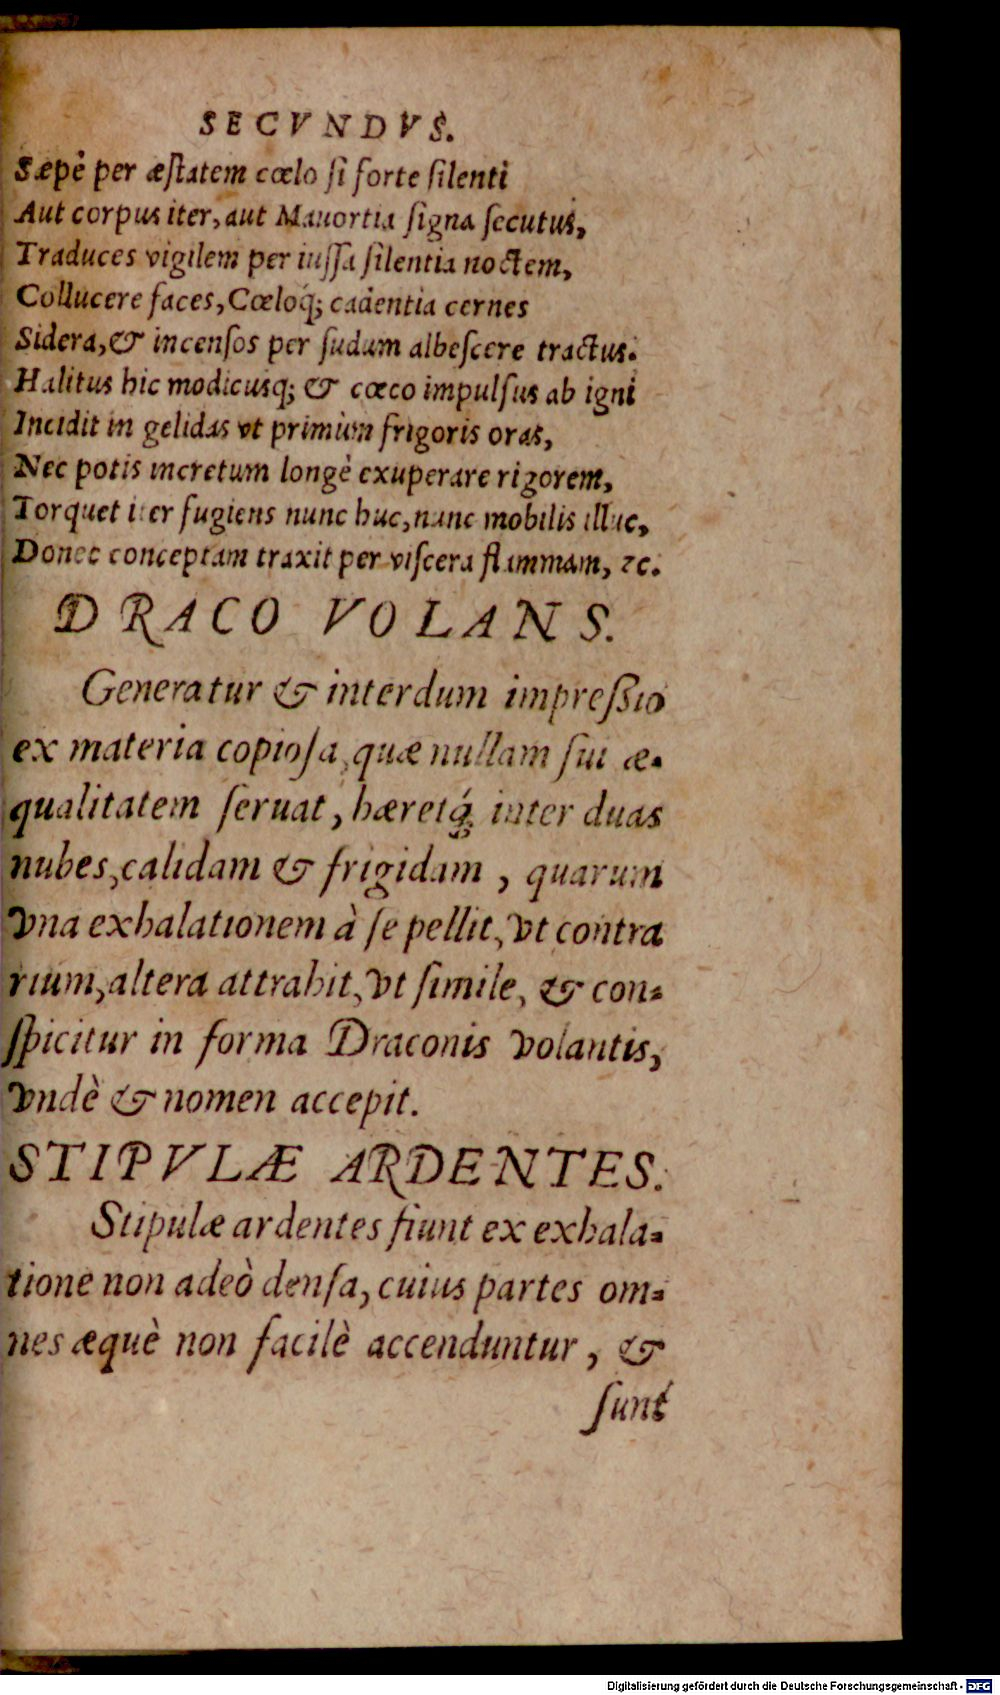 SECVNDVS.
Sæpè per æſtatem cœlo ſi forte ſilenti
Aut corpus iter, aut Mauortia ſigna ſecutus,
Traduces vigilem per iuſſa ſilentia noctem,
Collucere faces, Cœloq́; cadentia cernes
Sidera, & incenſos per ſudum albeſcere tractus.
Halitus hic modicusq; & cœco impulſus ab igni
Incidit in gelidas vt primùm frigoris oras,
Nec potis incretum longè exuperare rigorem,
Torquet iter fugiens nunc huc, nunc mobilis illuc,
Donec conceptam traxit per viſcera flammam, ꝛc.
DRACO VOLANS.
Generatur & interdum impreſsio
ex materia copioſa, quæ nullam ſui æ-
qualitatem ſeruat, hæretq́; inter duas
nubes, calidam & frigidam, quarum
vna exhalationem à ſe pellit, vt contra
rium, altera attrahit, vt ſimile, & con-
ſpicitur in forma Draconis volantis,
vndè & nomen accepit.
STIPVLÆ ARDENTES.
Stipulæ ardentes fiunt ex exhala-
tione non adeò denſa, cuius partes om-
nes æquè non facilè accenduntur, &
ſunt
Digitalisierung gefördert durch die Deutsche Forschungsgemeinschaft - DFG